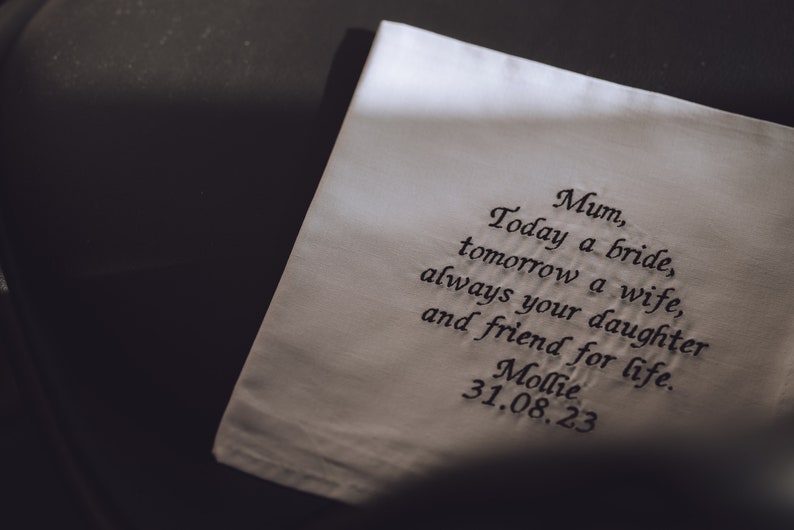 Mum,
Today a bride,
tomorrow a wife,
always your daughter
and friend for life.
Mollie
31.08.23